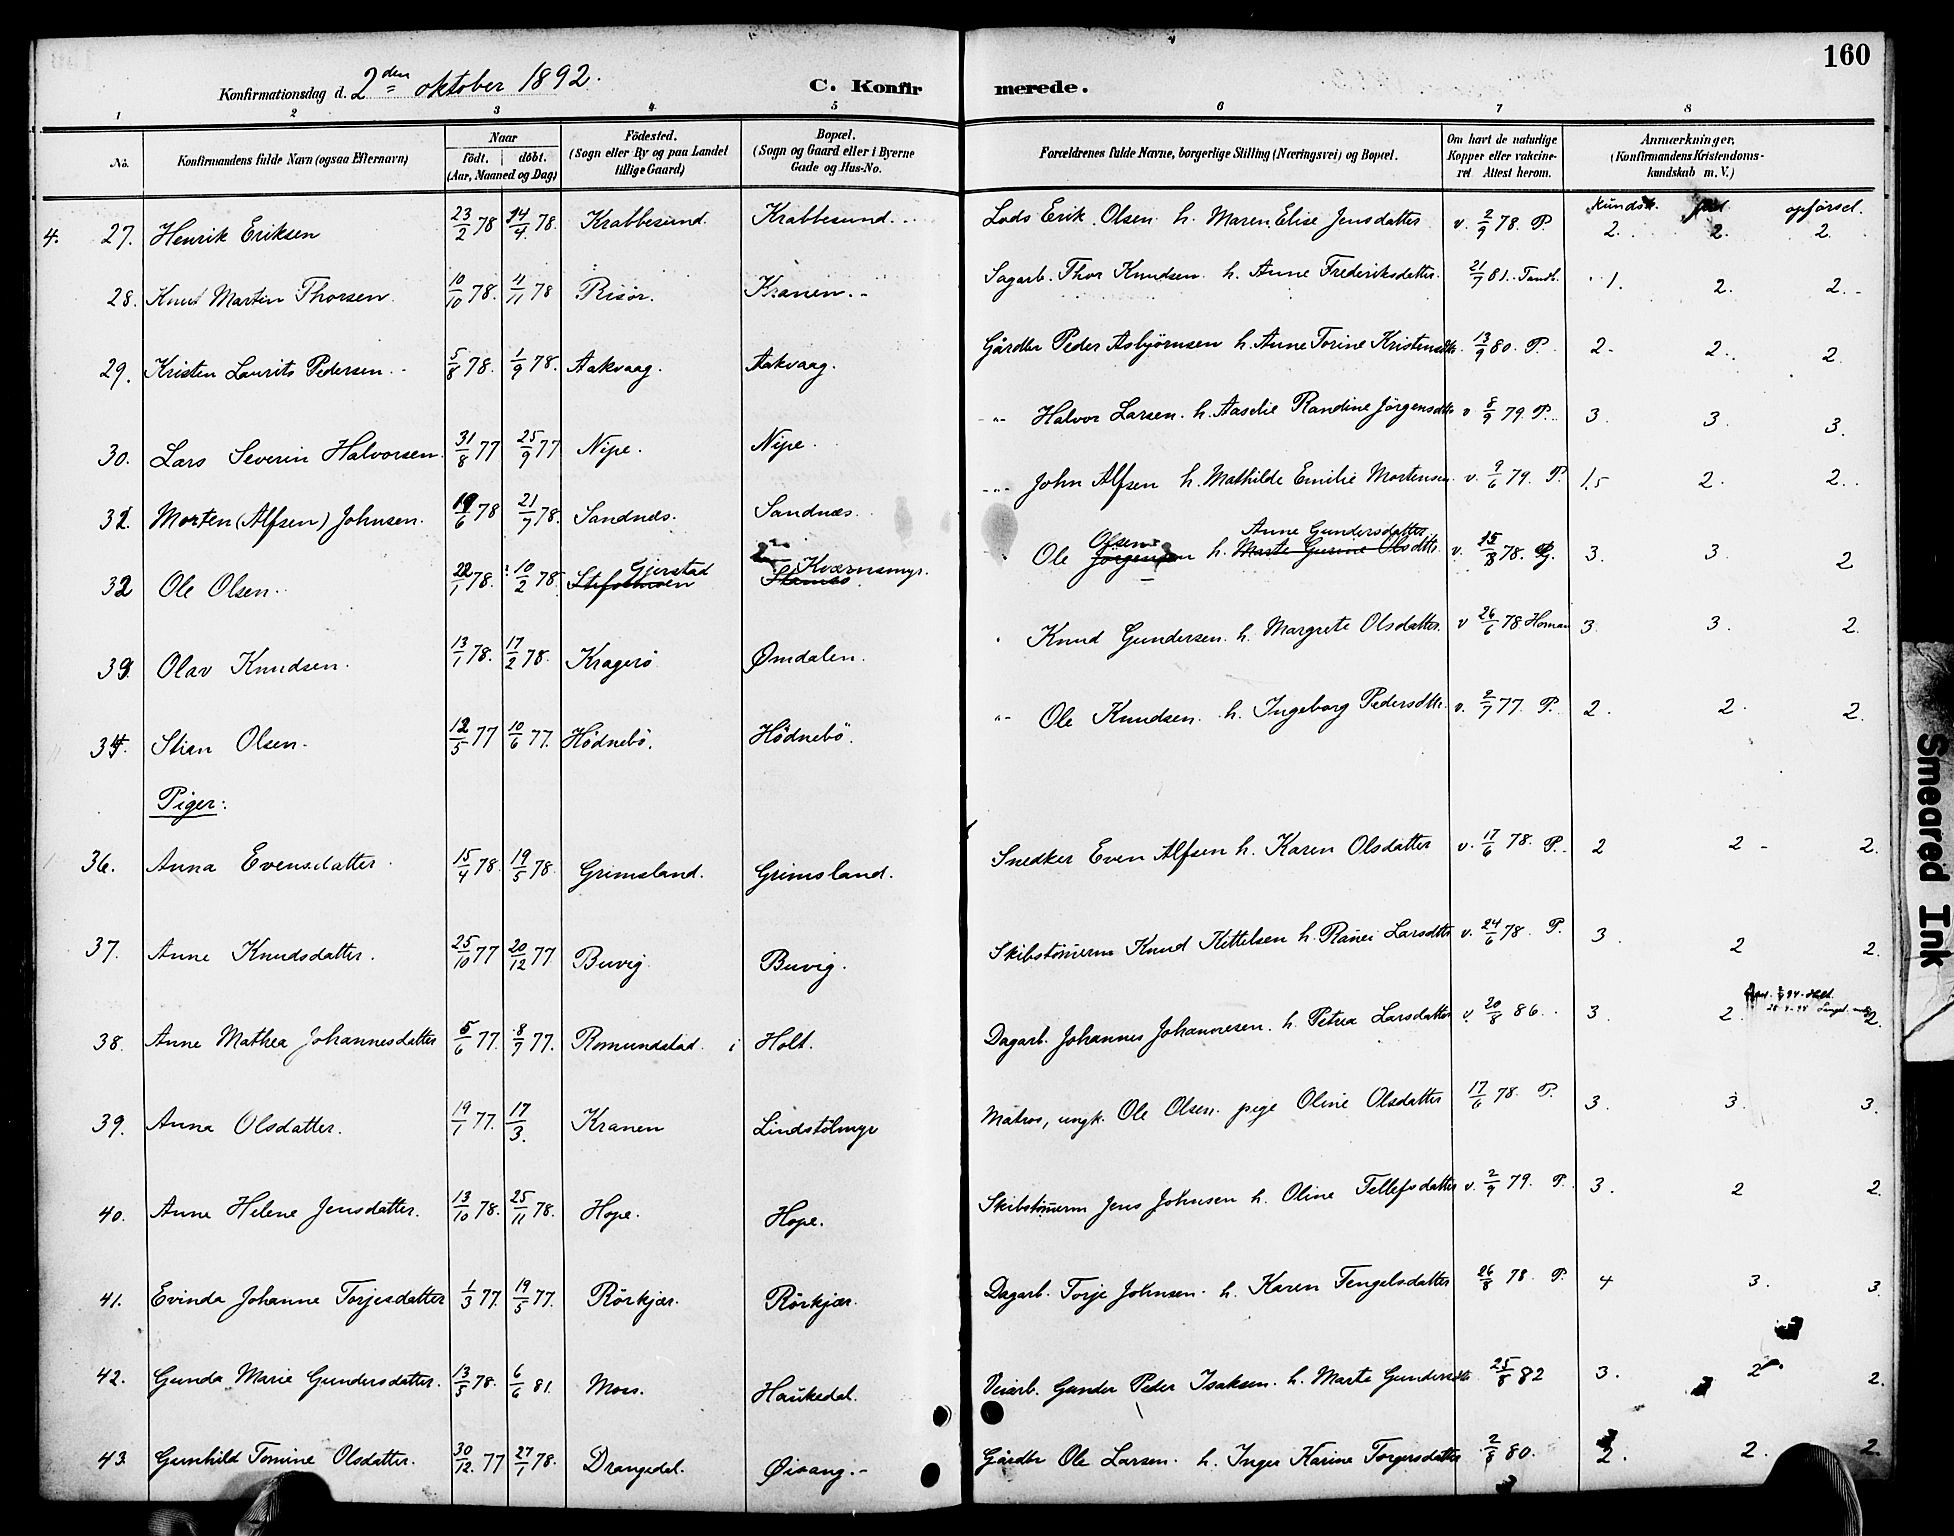 160
Konfirmationsdag d. 2den oktober 1892.
C. Konfirmerede.
1 2 3 4 5 6 7 8
No.
Konfirmandens fulde Navn (ogsaa Efternavn)
Naar
födt. döbt.
(Aar, Maaned og Dag)
Födested.
(Sogn eller By og paa Landet tillige Gaard)
Bopæl.
(Sogn og Gaard eller i Byerne Gade og Hus-No.
Forældrenes fulde Navne, borgerlige Stilling (Næringsvei) og Bopæl.
Om havt de naturlige Kopper eller vakcineret Attest herom.
Anmærkninger.
(Konfirmandens Kristendomskundskab m. V.)
Kundsk. flid opførsel.
4. 27. Henrik Eriksen 23/2 78 14/4 78. Krabbesund. Krabbesund. Lods Erik Olsen h. Maren Elise Jensdatter v. 2/9 78. P. 2. 2. 2.
28. Knut Martin Thorsen 10/10 78. 4/11 78 Risör. Kranen. Sagarb. Thor Knudsen h. Anne Frederiksdatter. 21/9 81. Tandb. 1. 2. 2.
29. Kristen Laurits Pedersen 5/8 78. 1/9 78. Aakvaag. Aakvaag. Gårdbr Peder Asbjörnsen h. Anne Torine Kristensdtr. 13/9 80. P. 2 2. 2.
30. Lars Severin Halvorsen. 31/8 77 25/9 77 Nipe. Nipe. "- Halvor Larsen. h. Aaselie Randine Jörgensdtr v 8/9 79. P. 3. 3. 3.
31. Morten (Alfsen) Johnsen. 19/6 78 21/7 78. Sandnæs. Sandnæs. -"- John Alfsen h. Mathilde Emilie Mortensen. v. 9/6 79. P. 1,5 2. 2.
32 Ole Olsen. 22/1 78. 10/2 78. Gjerstad Kværnsmyr. Ole Olsen h. Anne Gundersdatter v. 15/8 78. 3. 3. 2
33. Olav Knudsen. 13/1 78. 17/2 78. Kragerö Ømdalen. Knud Gundersen. h. Margrete Olsdatter. v 26/6 78. Homan 3. 3. 2.
34. Stian Olsen. 12/5 77 10/6 77. Hödnebö. Hödnebö. "- Ole Knudsen. h. Ingeborg Pedersdtr. v. 2/7 77. P. 2. 2. 2.
Piger:
36. Anna Evensdatter. 15/4 78. 19/5 78. Grimsland. Grimsland. Snedker Even Alfsen h. Karen Olsdatter v. 17/6 78. P. 2 2 2.
37. Anne Knudsdatter. 25/10 77 20/12 77 Buvig. Buvig. Skibstömerm Knud Kittelsen h. Ranei Larsdtr v. 24/6 78. P. 3. 2 2.
38. Anne Mathea Johannesdatter 5/6 77. 8/7 77. Romundstad i Holt. Dagarb. Johannes Johannesen. h. Petrea Larsdatter v. 20/8 86. 3. 2. 2.
39. Anna Olsdatter. 19/1 77. 17/3. Kranen Lindstölmyr Matros, ungk. Ole Olsen. pige Oline Olsdatter 17/6 78. P. 3. 3. 3.
40. Anne Helene Jensdatter. 13/10 78. 25/11 78. Hope. Hope. Skibstömerm Jens Johnsen h. Oline Tellefsdatter v. 2/9 79. P. 3. 2 2.
41. Evinda Johanne Torjesdatter 1/3 77. 19/5 77. Rörkjær. Rörkjær. Dagarb. Torje Johnsen. h. Karen Tengelsdatter 26/8 78. P. 4 3. 3.
42. Gunda Marie Gundersdatter. 13/5 78. 6/6 81. Moss. Haukedal. Veiarb. Gunder Peder Isaksen. h. Marte Gundersdtr 25/8 82 3. 2 2.
43. Gunhild Tomine Olsdatter. 30/12. 77 27/1 78. Drangedal. Øivang. Gårdbr Ole Larsen. h. Inger Karine Torgersdatter 2/8 80. 2. 2. 2.
Smeared Ink